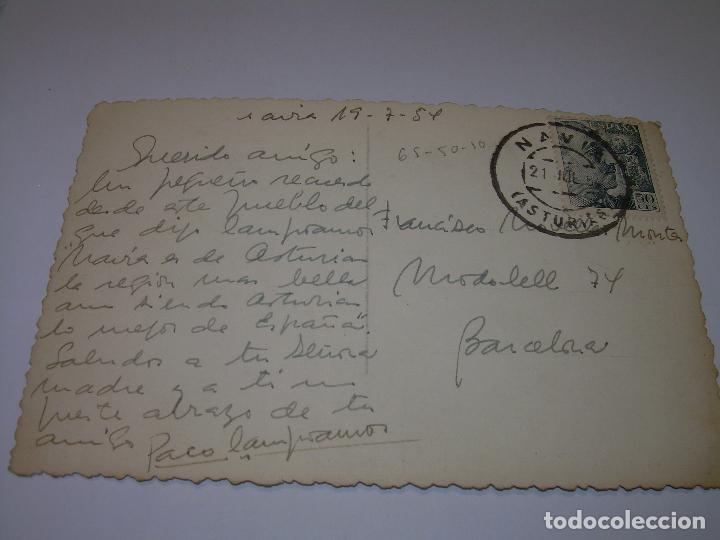 Navia 19-7-54
65-50-10
NAVIA
21 JUL
(ASTURIAS)
Querido amigo:
Un pequeño recuerdo
desde este pueblo del
que dijo Campoamor
"Navia es de Asturias
la región mas bella
aun siendo Asturias
lo mejor de España".
Saludos a tu Señora
madre y a ti un
fuerte abrazo de tu
amigo Paco Campoamor
Francisco
Modolell 74
Barcelona
todocoleccion.net